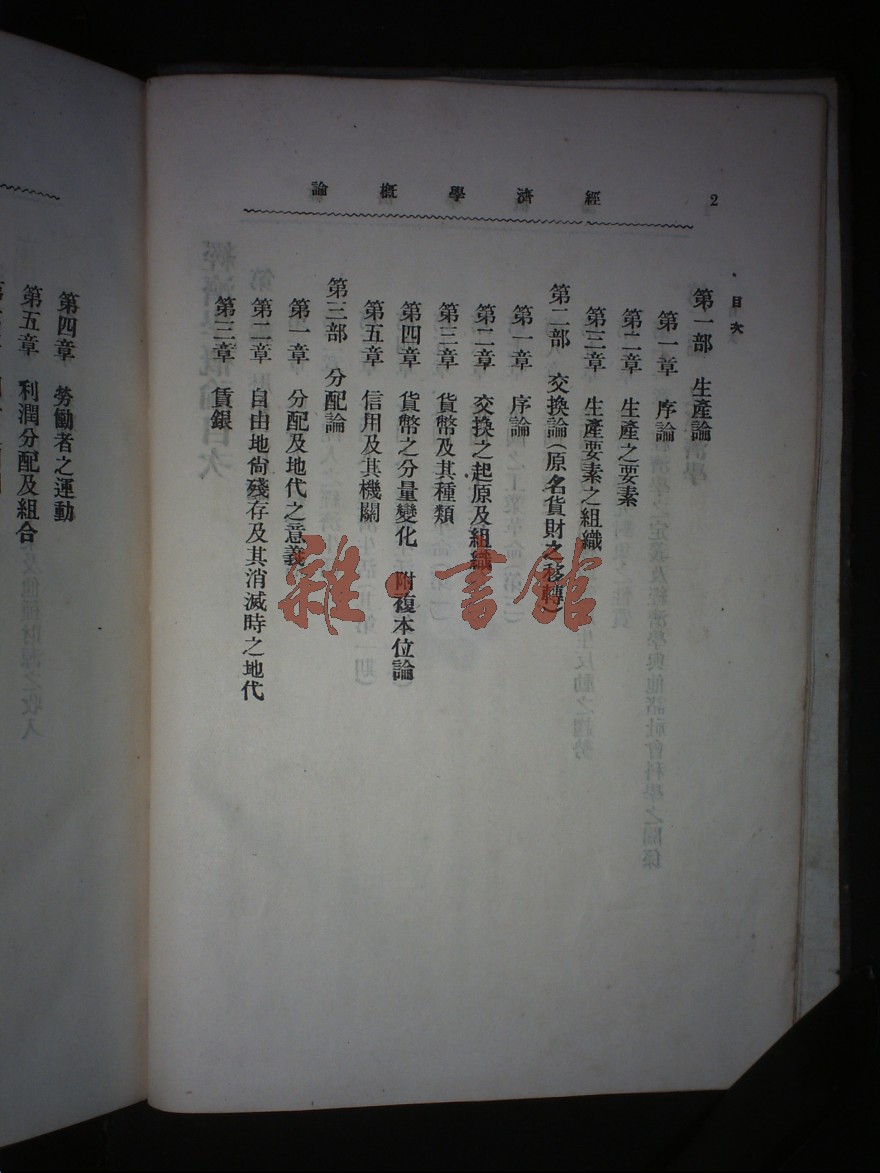 2
經濟學概論
目次
第一部 生產論
第一章 序論
第二章 生產之要素
第三章 生產要素之組織
第二部 交換論(原名貨財之移轉)
第一章 序論
第二章 交換之起原及組織
第三章 貨幣及其種類
第四章 貨幣之分量變化 附複本位論
第五章 信用及其機關
第三部 分配論
第一章 分配及地代之意義
第二章 自由地尙殘存及其消滅時之地代
第三章 賃銀
第四章 勞働者之運動
第五章 利潤分配及組合
雜·書館